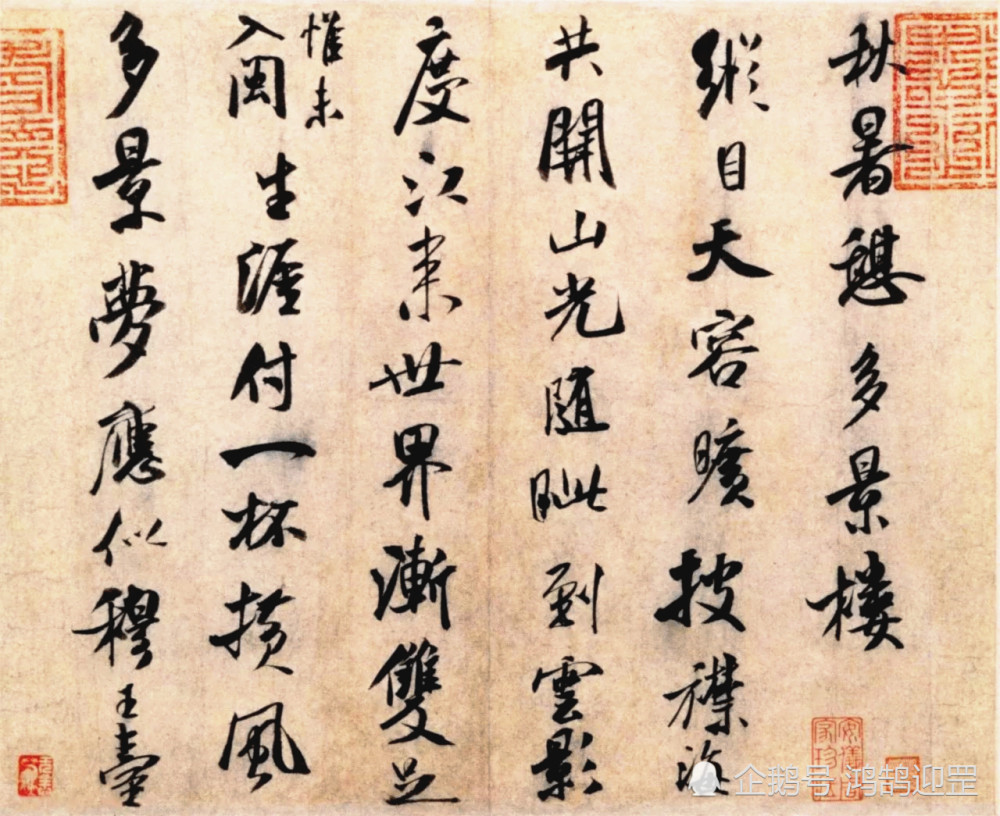 秋暑憩多景樓
縱目天容曠披襟海
共開山光隨眦到雲影
度江来世界漸雙足
惟未
入閩生涯付一杯橫風
多景夢應似穆王臺
企鹅号 鸿鹄迎罡